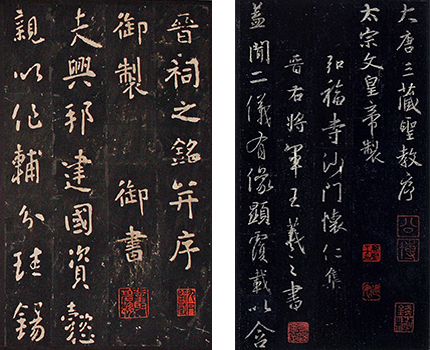 晉祠之銘并序
御製 御書
夫興邦建國資懿
親以作輔分珪錫
大唐三藏聖教序
太宗文皇帝製
弘福寺沙門懷仁集
晉右將軍王羲之書
蓋聞二儀有像顯覆載以含